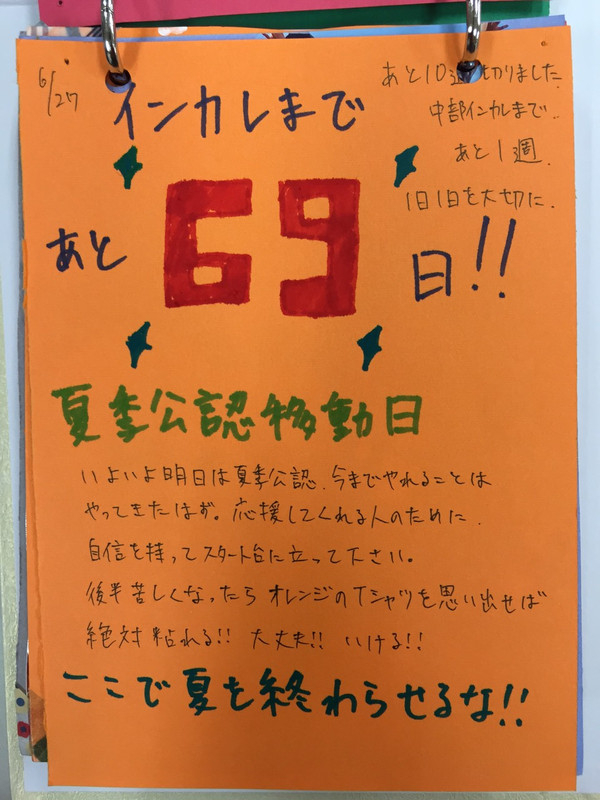 6/27
インカレまで
あと10週切りました.
中部インカレまで.
あと1週.
1日1日を大切に.
あと 69 日!!
夏季公認移動日
いよいよ明日は夏季公認.今までやれることは
やってきたはず。応援してくれる人のために.
自信を持ってスタート台に立って下さい。
後半苦しくなったらオレンジのTシャツを思い出せば
絶対粘れる!! 大丈夫!! いける!!
ここで夏を終わらせるな!!